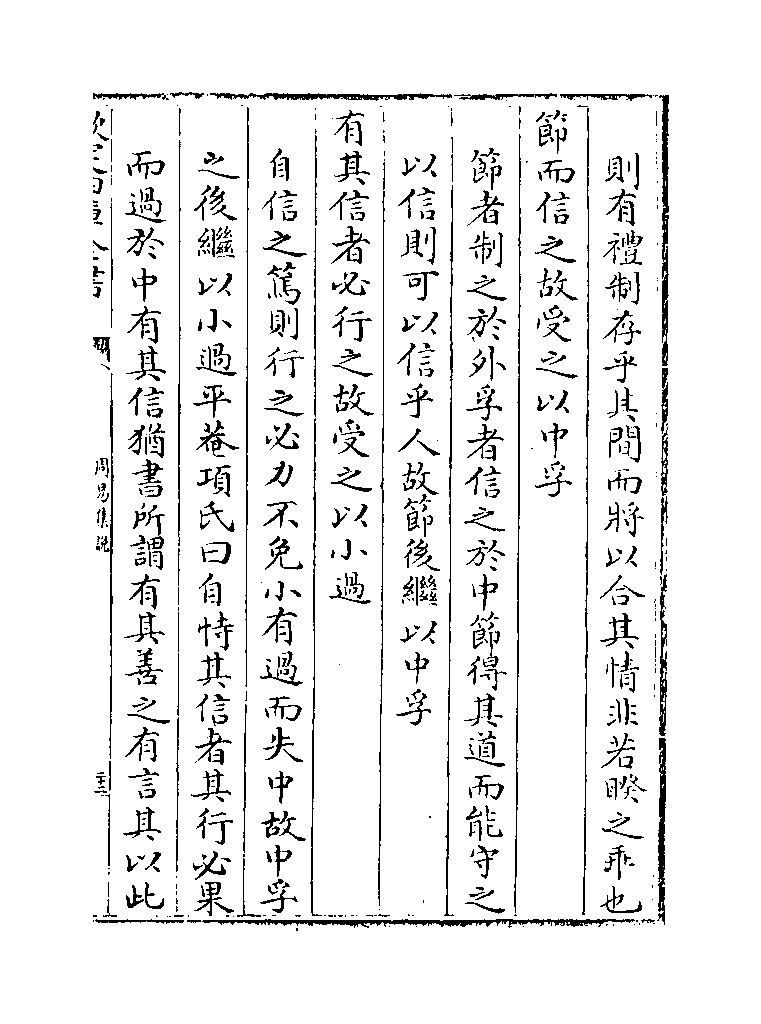 則有禮制存乎其間而將以合其情非若睽之乖也
節而信之故受之以中孚
節者制之於外孚者信之於中節得其道而能守之
以信則可以信乎人故節後繼以中孚
有其信者必行之故受之以小過
自信之篤則行之必力不免小有過而失中故中孚
之後繼以小過平菴項氏曰自恃其信者其行必果
而過於中有其信猶書所謂有其善之有言其以此
欽定四庫全書
周易集說